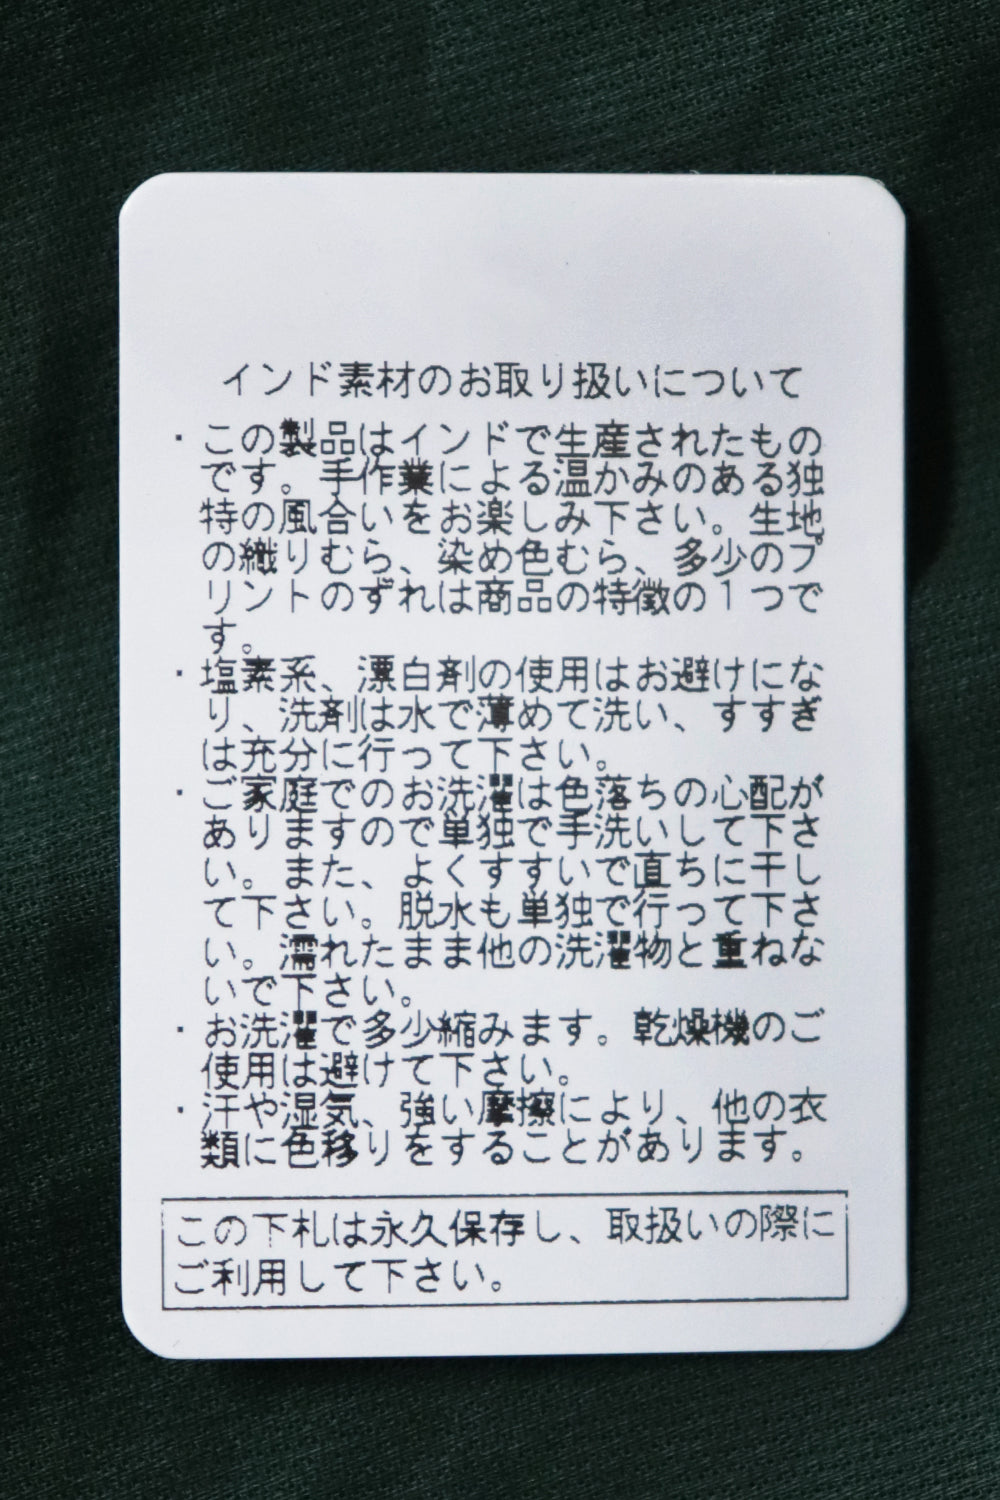 インド素材のお取り扱いについて
・この製品はインドで生産されたもの
です。手作業による温かみのある独
特の風合いをお楽しみ下さい。生地
の織りむら、染め色むら、多少のプ
リントのずれは商品の特徴の1つで
す。
・塩素系、漂白剤の使用はお避けにな
り、洗剤は水で薄めて洗い、すすぎ
は充分に行って下さい。
・ご家庭でのお洗濯は色落ちの心配が
ありますので単独で手洗いして下さ
い。また、よくすすいで直ちに干し
て下さい。脱水も単独で行って下さ
い。濡れたまま他の洗濯物と重ねな
いで下さい。
・お洗濯で多少縮みます。乾燥機のご
使用は避けて下さい。
・汗や湿気、強い摩擦により、他の衣
類に色移りをすることがあります。
この下札は永久保存し、取扱いの際に
ご利用して下さい。